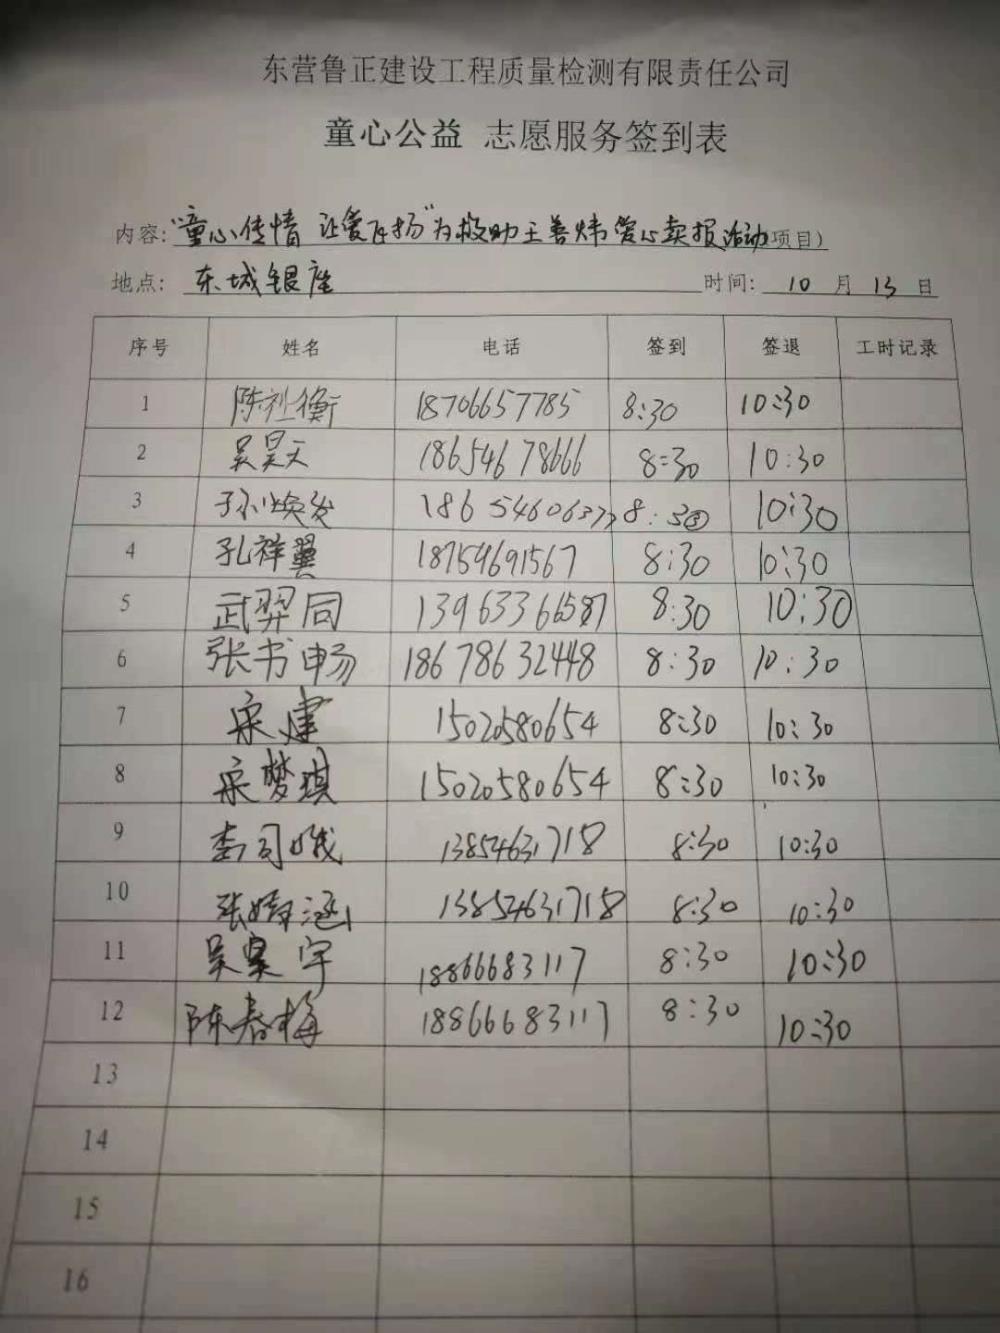 东营鲁正建设工程质量检测有限责任公司
童心公益 志愿服务签到表
内容:"童心传情 让爱飞扬"为救助王善炜爱心卖报活动项目)
地点: 东城银座 时间: 10 月 13 日
序号 姓名 电话 签到 签退 工时记录
1 陈衡 18706657785 8:30 10:30
2 吴昊天 18654678666 8:30 10:30
3 孙焕发 8:30 10:30
4 孔祥翼 18754691567 8:30 10:30
5 武羿同 8:30 10:30
6 张书畅 18678632448 8:30 10:30
7 宋建 15020580654 8:30 10:30
8 宋梦琪 15020580654 8:30 10:30
9 李司 13854631718 8:30 10:30
10 张婧涵 13854631718 8:30 10:30
11 吴昊宇 18866683117 8:30 10:30
12 陈春梅 18866683117 8:30 10:30
13
14
15
16